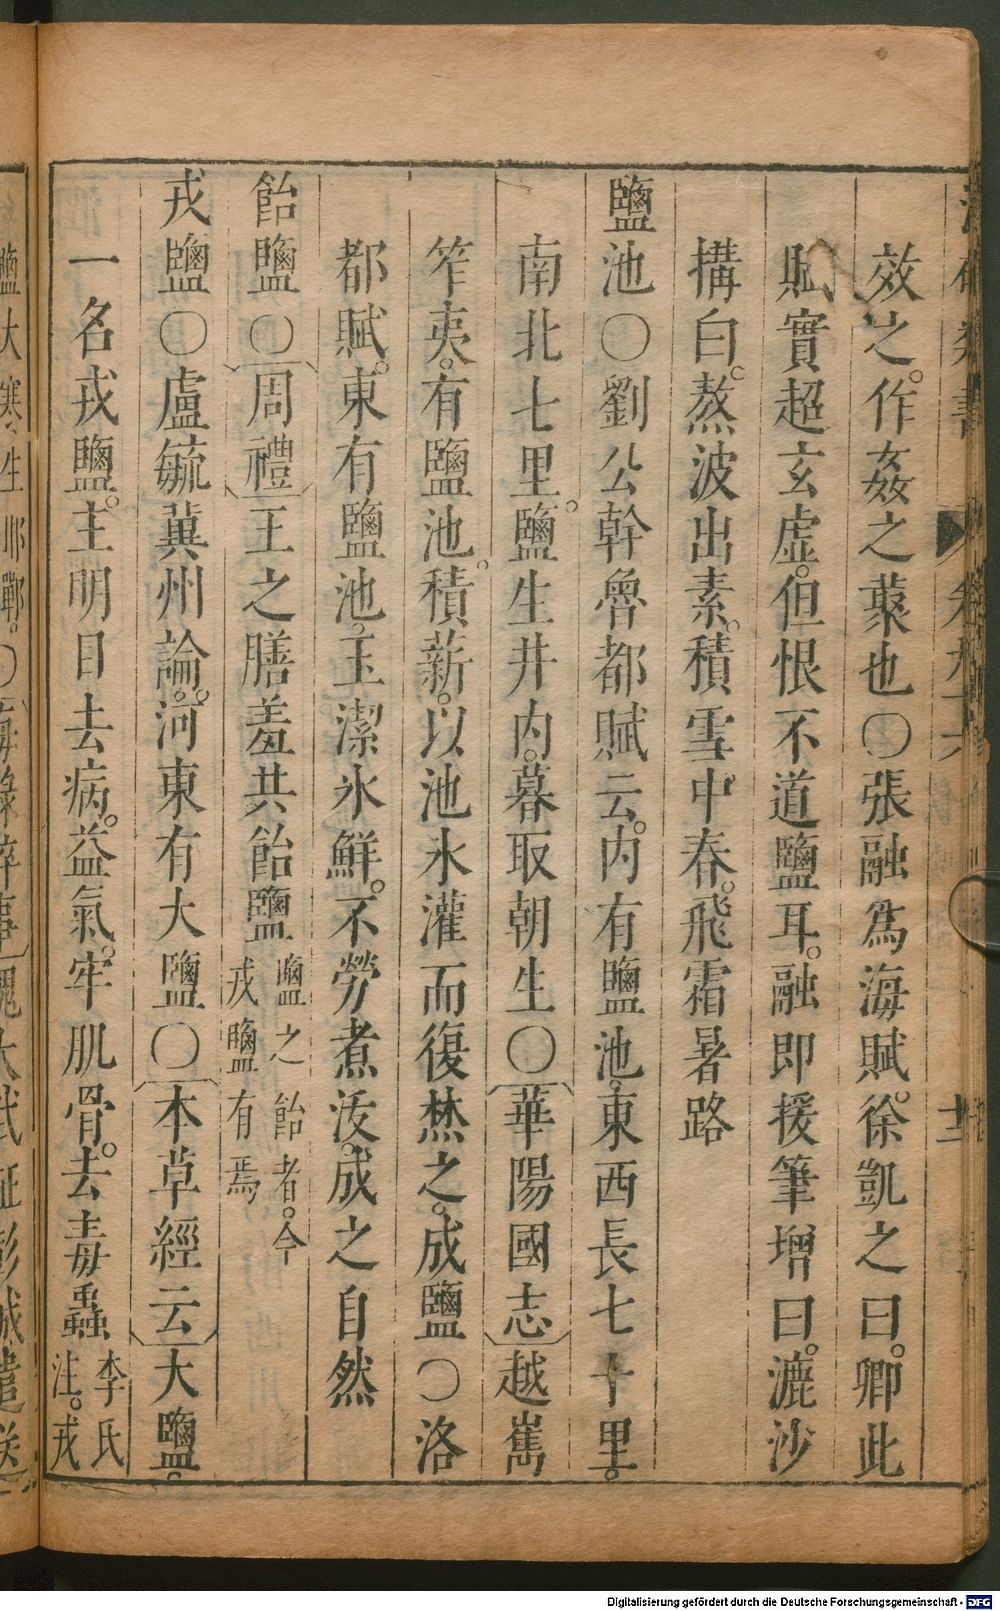 效之。作姦之蘂也〇張融爲海賦。徐凱之曰。卿此
賦實超玄虛。但恨不道鹽耳。融即援筆增曰。漉沙
搆白。熬波出素。積雪中春。飛霜暑路
鹽池〇劉公幹魯都賦云。内有鹽池。東西長七十里。
南北七里。鹽生井内。暮取朝生〇〔華陽國志〕越巂
笮夷。有鹽池。積薪。以池水灌而復焚之。成鹽〇洛
都賦。東有鹽池。玉潔水鮮。不勞煮沷。成之自然
飴鹽〇〔周禮〕王之膳羞共飴鹽 鹽之飴者。今戎鹽有焉
戎鹽〇盧毓冀州論。河東有大鹽〇〔本草經云〕大鹽。
一名戎鹽。主明目去病。益氣。牢肌骨。去毒蟲 李氏注。戎
鹽大寒生邯鄲。〇
Digitalisierung gefördert durch die Deutsche Forschungsgemeinschaft - DFG